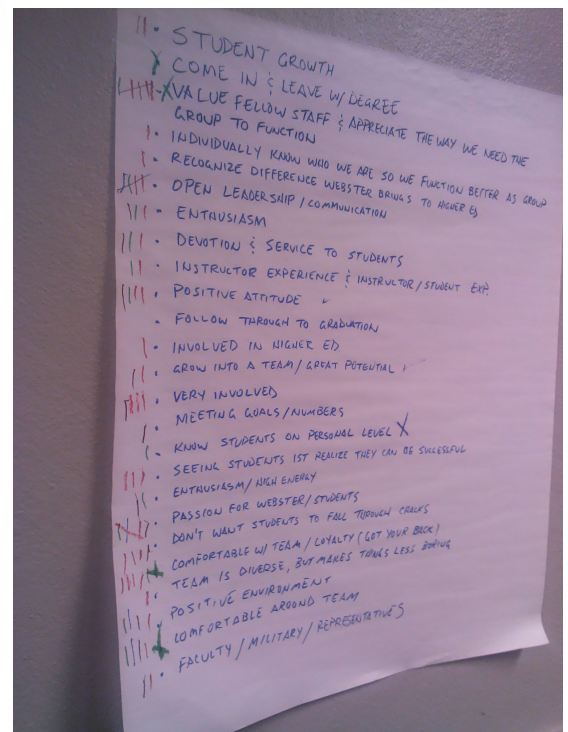 • STUDENT GROWTH
COME IN & LEAVE W/ DEGREE
VALUE FELLOW STAFF & APPRECIATE THE WAY WE NEED THE
GROUP TO FUNCTION
• INDIVIDUALLY KNOW WHO WE ARE SO WE FUNCTION BETTER AS GROUP
• RECOGNIZE DIFFERENCE WEBSTER BRINGS TO HIGHER ED
• OPEN LEADERSHIP / COMMUNICATION
• ENTHUSIASM
• DEVOTION & SERVICE TO STUDENTS
• INSTRUCTOR EXPERIENCE & INSTRUCTOR / STUDENT EXP.
• POSITIVE ATTITUDE
• FOLLOW THROUGH TO GRADUATION
• INVOLVED IN HIGHER ED
• GROW INTO A TEAM / GREAT POTENTIAL
• VERY INVOLVED
• MEETING GOALS / NUMBERS
• KNOW STUDENTS ON PERSONAL LEVEL X
• SEEING STUDENTS 1ST REALIZE THEY CAN BE SUCCESSFUL
• ENTHUSIASM / HIGH ENERGY
• PASSION FOR WEBSTER / STUDENTS
• DON'T WANT STUDENTS TO FALL THROUGH CRACKS
• COMFORTABLE W/ TEAM / LOYALTY (GOT YOUR BACK)
• TEAM IS DIVERSE, BUT MAKES THINGS LESS BORING
• POSITIVE ENVIRONMENT
• COMFORTABLE AROUND TEAM
• FACULTY / MILITARY / REPRESENTATIVES